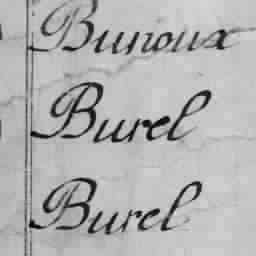 Bunoux
Burel
Burel